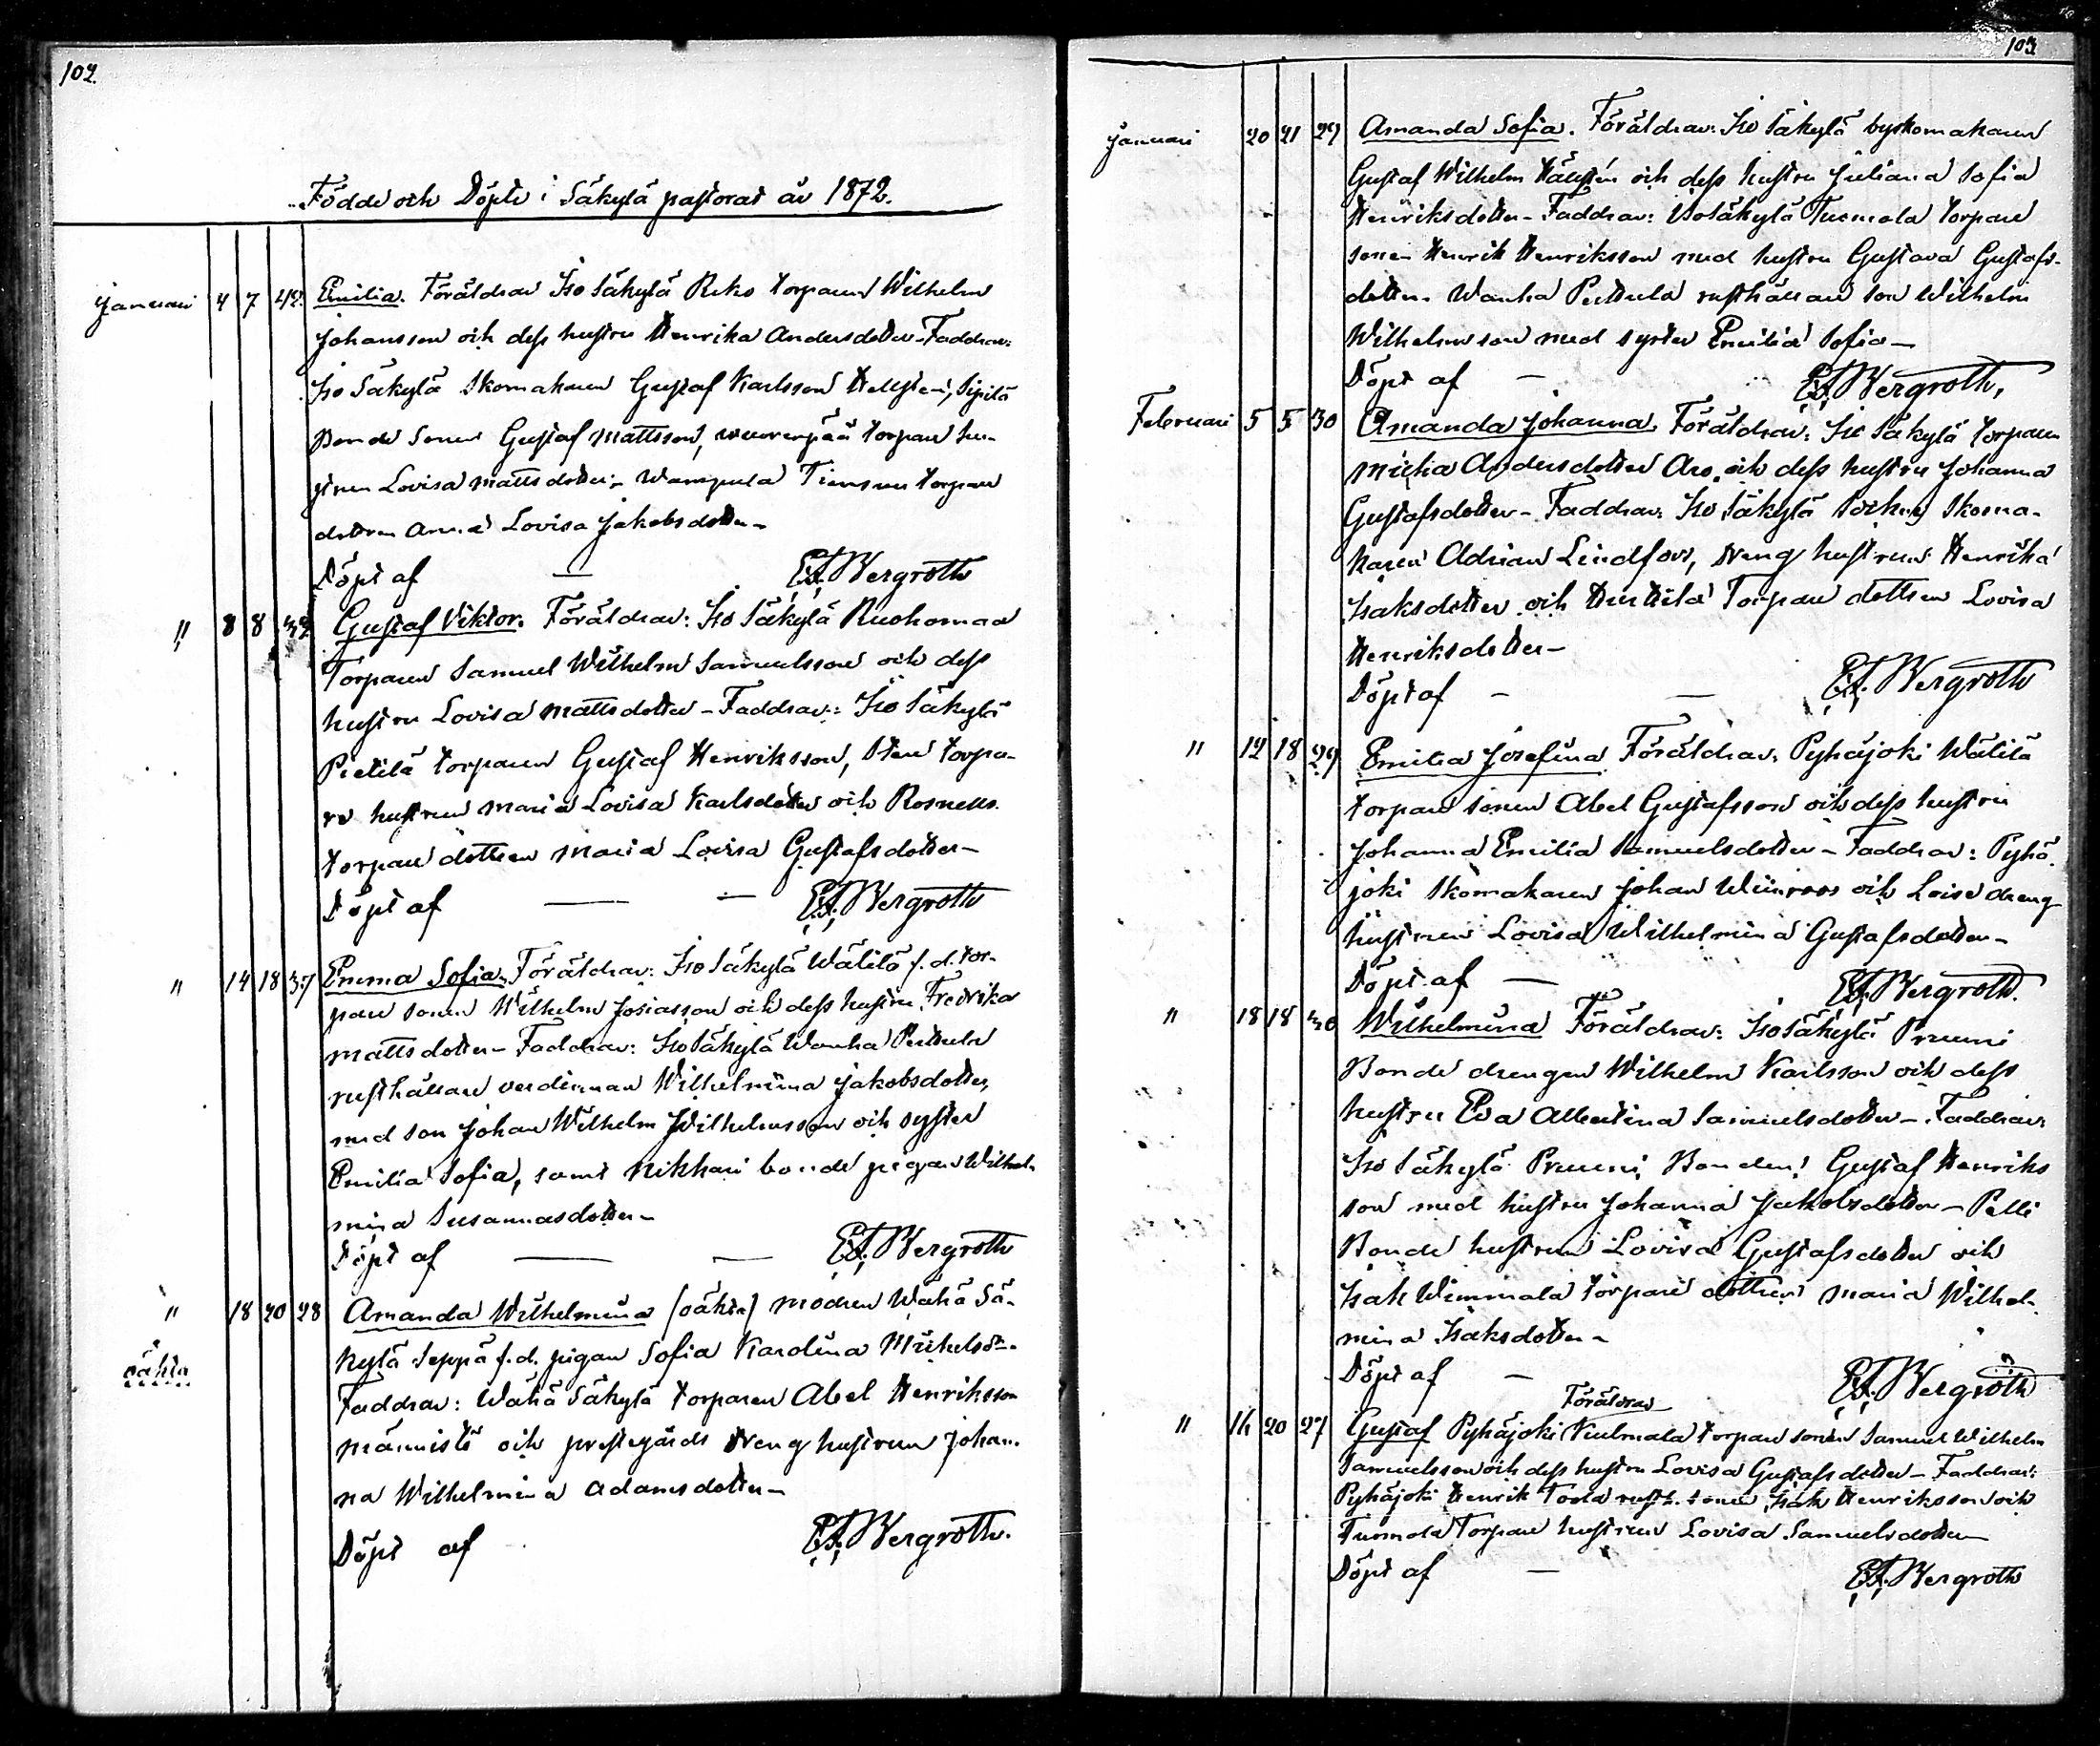 102.
Födde och Döpte i Säkylä pastorat år 1872.
Januari 4 7 42. Emilia. Föräldrar Iso Säkylä Reko torparen Wilhelm
Johansson och dess hustru Henrika Andersdotter - Faddrar:
Iso Säkylä Skomakaren Gustaf Karlsson Hellsten, Sipilä
Bonde Sonen Gustaf Mattsson, torpare hu-
strun Lovisa Mattsdotter; torpare
dottren Anna Lovisa Jakobsdotter -
Döpt af — E.F. Bergroth
" 8 8 Gustaf Viktor. Föräldrar: Iso Säkylä Ruohomaa
Torparen Samuel Wilhelm Samuelsson och dess
hustru Lovisa Mattsdotter - Faddrar: Iso Säkylä
Pietilä torparen Gustaf Henriksson, torpa-
re hustrun Maria Lovisa Karlsdotter och
torpare dottren Maria Lovisa Gustafsdotter -
Döpt af — — E.F. Bergroth
" 14 18 37 Emma Sofia. Föräldrar: Iso Säkylä Wälilä f.d. tor-
pare sonen Wilhelm Josiasson och dess hustru Fredrika
Mattsdotter - Faddrar: Iso Säkylä Wanha Perttula
rusthållare Wilhelmina Jakobsdotter,
med son Johan Wilhelm Wilhelmsson och syster
Emilia Sofia, samt Nikkari bonde pigan Wilhel-
mina Susannasdotter -
Döpt af — — E.F. Bergroth
" 18 20 28 Amanda Wilhelmina (oäkta) modren Wähä Sä-
oäkta kylä Seppä f.d. pigan Sofia Karolina Michelsdr.
Faddrar: Wähä Säkylä torparen Abel Henriksson
Männistö och prestegårds dreng hustrun Johan-
na Wilhelmina Adamsdotter -
Döpt af E.F. Bergroth.
103
Januari 20 21 29 Amanda Sofia. Föräldrar: Iso Säkylä byskomakaren
Gustaf Wilhelm och dess hustru Juliana Sofia
Henriksdotter - Faddrar: Isosäkylä Tuomola torpare
sonen Henrik Henriksson med hustru Gustava Gustafs-
dotter. Wanha Perttula rusthållare son Wilhelm
Wilhelmsson med syster Emilia Sofia -
Döpt af — E.F. Bergroth.
Februari 5 5 30 Amanda Johanna. Föräldrar: Iso Säkylä torparen
Andersdotter Aro och dess hustru Johanna
Gustafsdotter - Faddrar: Iso Säkylä Socken Skoma-
karen Adrian Lindfors, dreng hustrun Henrika
Isaksdotter och Torpare dottren Lovisa
Henriksdotter -
Döpt af — — E.F. Bergroth
" 12 18 29 Emilia Josefina Föräldrar: Pyhäjoki Wälilä
torpare sonen Abel Gustafsson och dess hustru
Johanna Emilia Samuelsdotter - Faddrar: Pyhä-
joki Skomakaren Johan Wiinroos och dreng
hustrun Lovisa Wilhelmina Gustafsdotter -
Döpt af — E.F. Bergroth.
" 18 18 30 Wilhelmina Föräldrar: Iso Säkylä Pruuni
Bonde drengen Wilhelm Karlsson och dess
hustru Eva Albertina Samuelsdotter - Faddrar:
Iso Säkylä Pruuni Bonden Gustaf Henriks
son med hustru Johanna Jakobsdotter - Pelli
Bonde hustrun Lovisa Gustafsdotter och
Isak Wimmala Torpare dottren Maria Wilhel-
mina Isaksdotter -
Döpt af — E.F. Bergroth
Föräldrar
" 16 20 27 Gustaf Pyhäjoki Kulmala torpare sonen Samuel Wilhelm
Samuelsson och dess hustru Lovisa Gustafsdotter - Faddrar:
Pyhäjoki Henrik Toola rusth. sonen Isak Henriksson och
Tuomola Torpare hustrun Lovisa Samuelsdotter
Döpt af — E.F. Bergroth